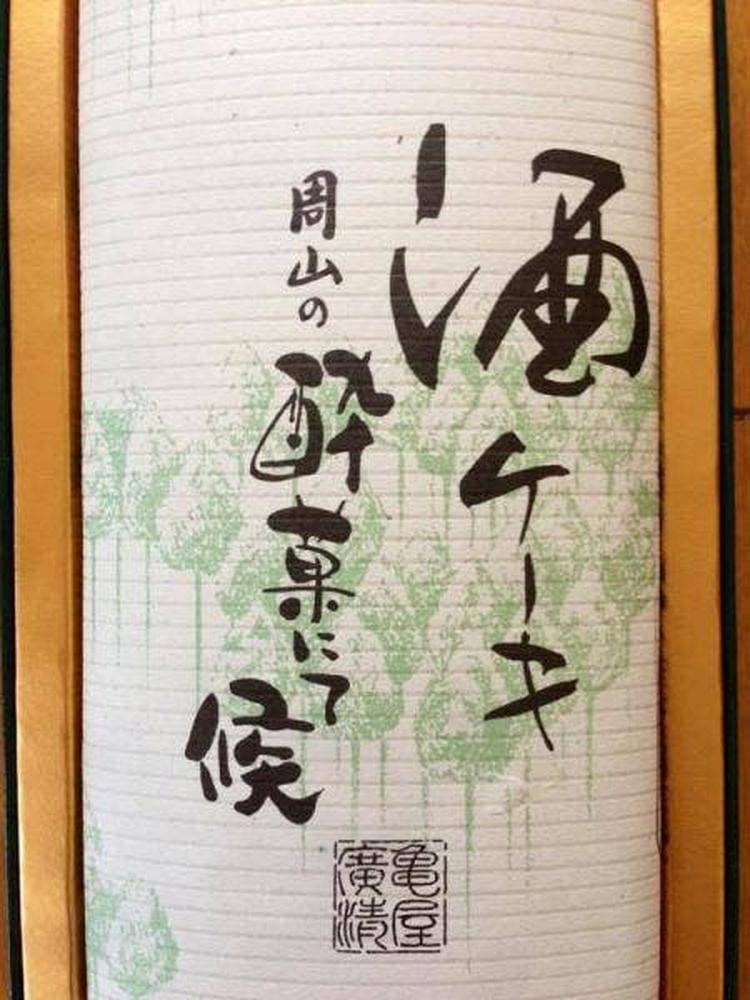 酒ケーキ
周山の酔菓にて候
亀屋
廣清